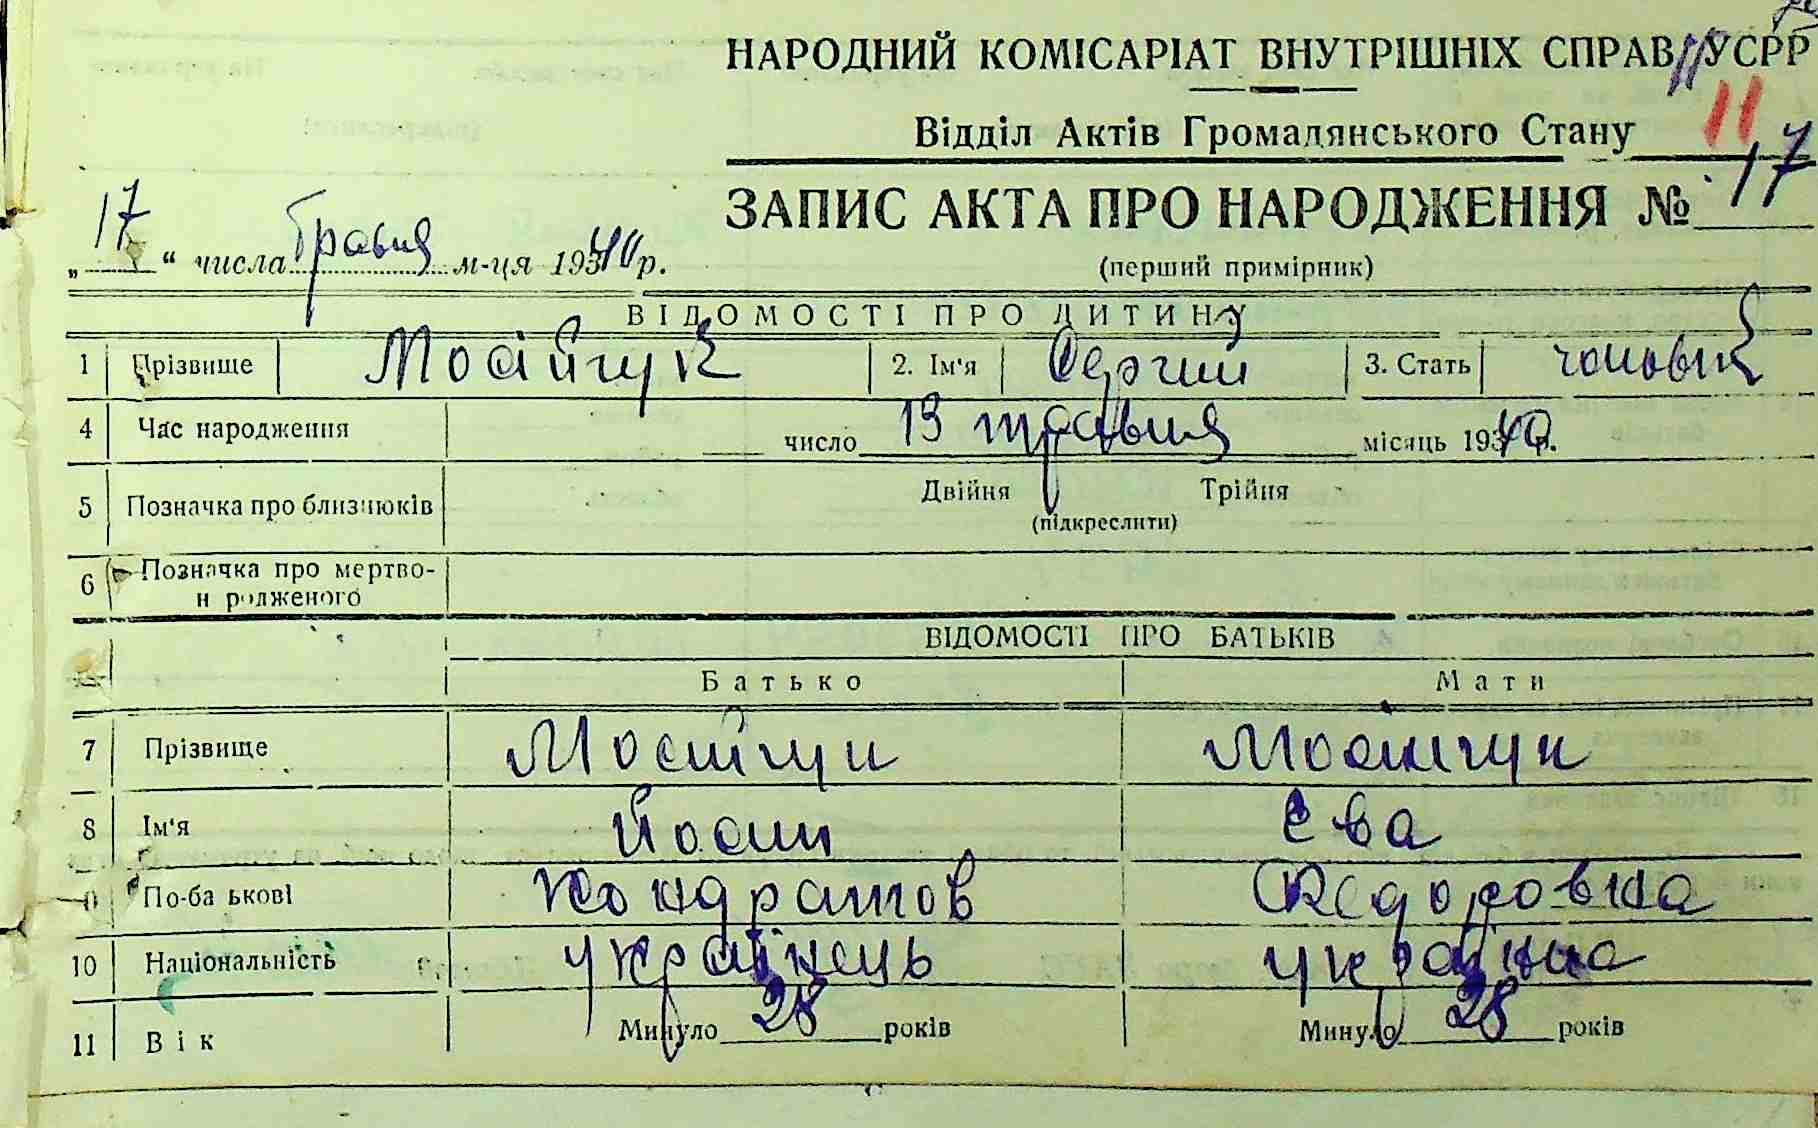 НАРОДНИЙ КОМІСАРІАТ ВНУТРІШНІХ СПРАВ УСРР
11
Відділ Актів Громадянського Стану
ЗАПИС АКТА ПРО НАРОДЖЕННЯ № 17
„17“ числа травня м-ця 1940 р.
(перший примірник)
ВІДОМОСТІ ПРО ДИТИНУ
1 Прізвище Мосійчук 2. Ім'я Сергий 3. Стать чоловік
4 Час народження число 13 травня місяць 1940 р.
5 Позначка про близнюків Двійня Трійня
(підкреслити)
6 Позначка про мертво-
н родженого
ВІДОМОСТІ ПРО БАТЬКІВ
Батько Мати
7 Прізвище Мосійчук Мосійчук
8 Ім'я Йосип Єва
9 По-ба ькові Кондратов Федоровна
10 Національність українець українка
11 Вік Минуло 28 років Минуло 28 років